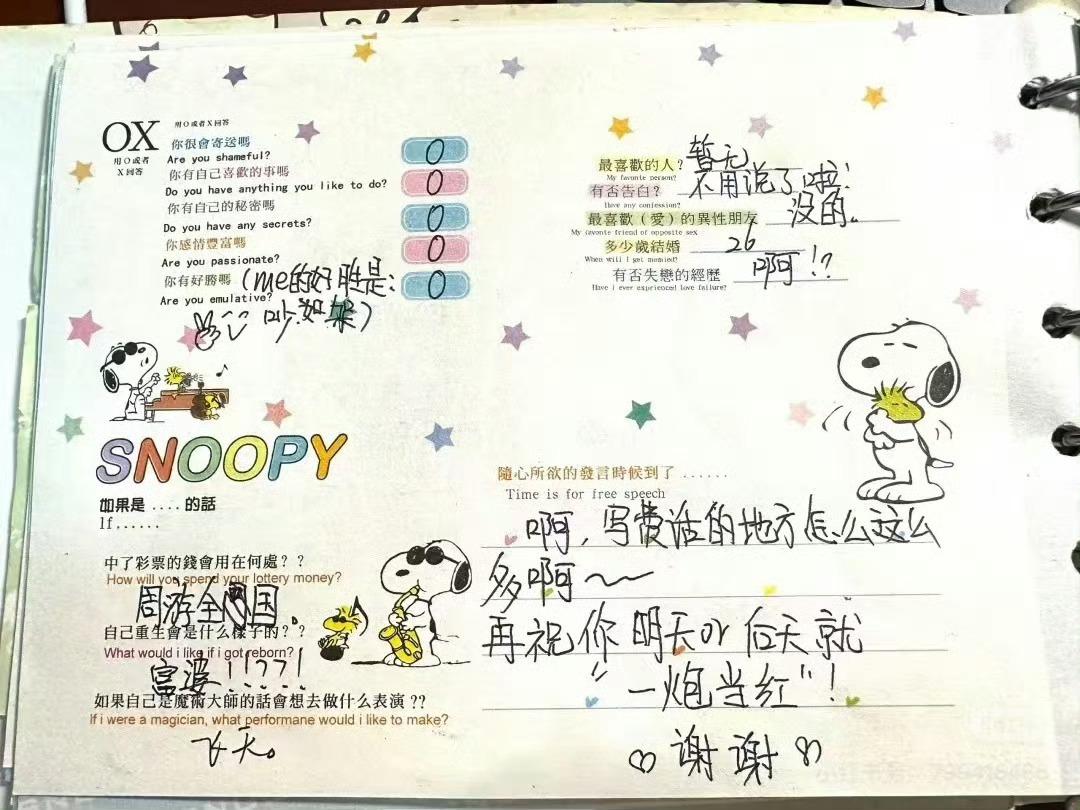 OX 用O或者X回答
用O或者
X回答
你很會寄送嗎
Are you shameful? O
你有自己喜歡的事嗎
Do you have anything you like to do? O
你有自己的秘密嗎
Do you have any secrets? O
你感情豐富嗎
Are you passionate? O
你有好勝嗎 (me的好胜是: O
Are you emulative?
SNOOPY
如果是 .... 的話
If......
中了彩票的錢會用在何處？？
How will you spend your lottery money?
周游全国.
自己重生會是什么樣子的？？
What would i like if i got reborn?
富婆!!??!
如果自己是魔術大師的話會想去做什么表演 ??
If i were a magician, what performane would i like to make?
飞天。
最喜歡的人? 暂无
My favonte person?
有否告白? 不用说了啦
Have any confession?
最喜歡（愛）的異性朋友 没的。
My cavonte friend of opposite sex
多少歲結婚 26
When will I get mamied?
有否失戀的經歷 啊!?
Have i ever exprienced love failure?
隨心所欲的發言時候到了 ......
Time is for free speech
啊，写费话的地方怎么这么
多啊~~
再祝你明天or后天就
“一炮当红”!
谢谢